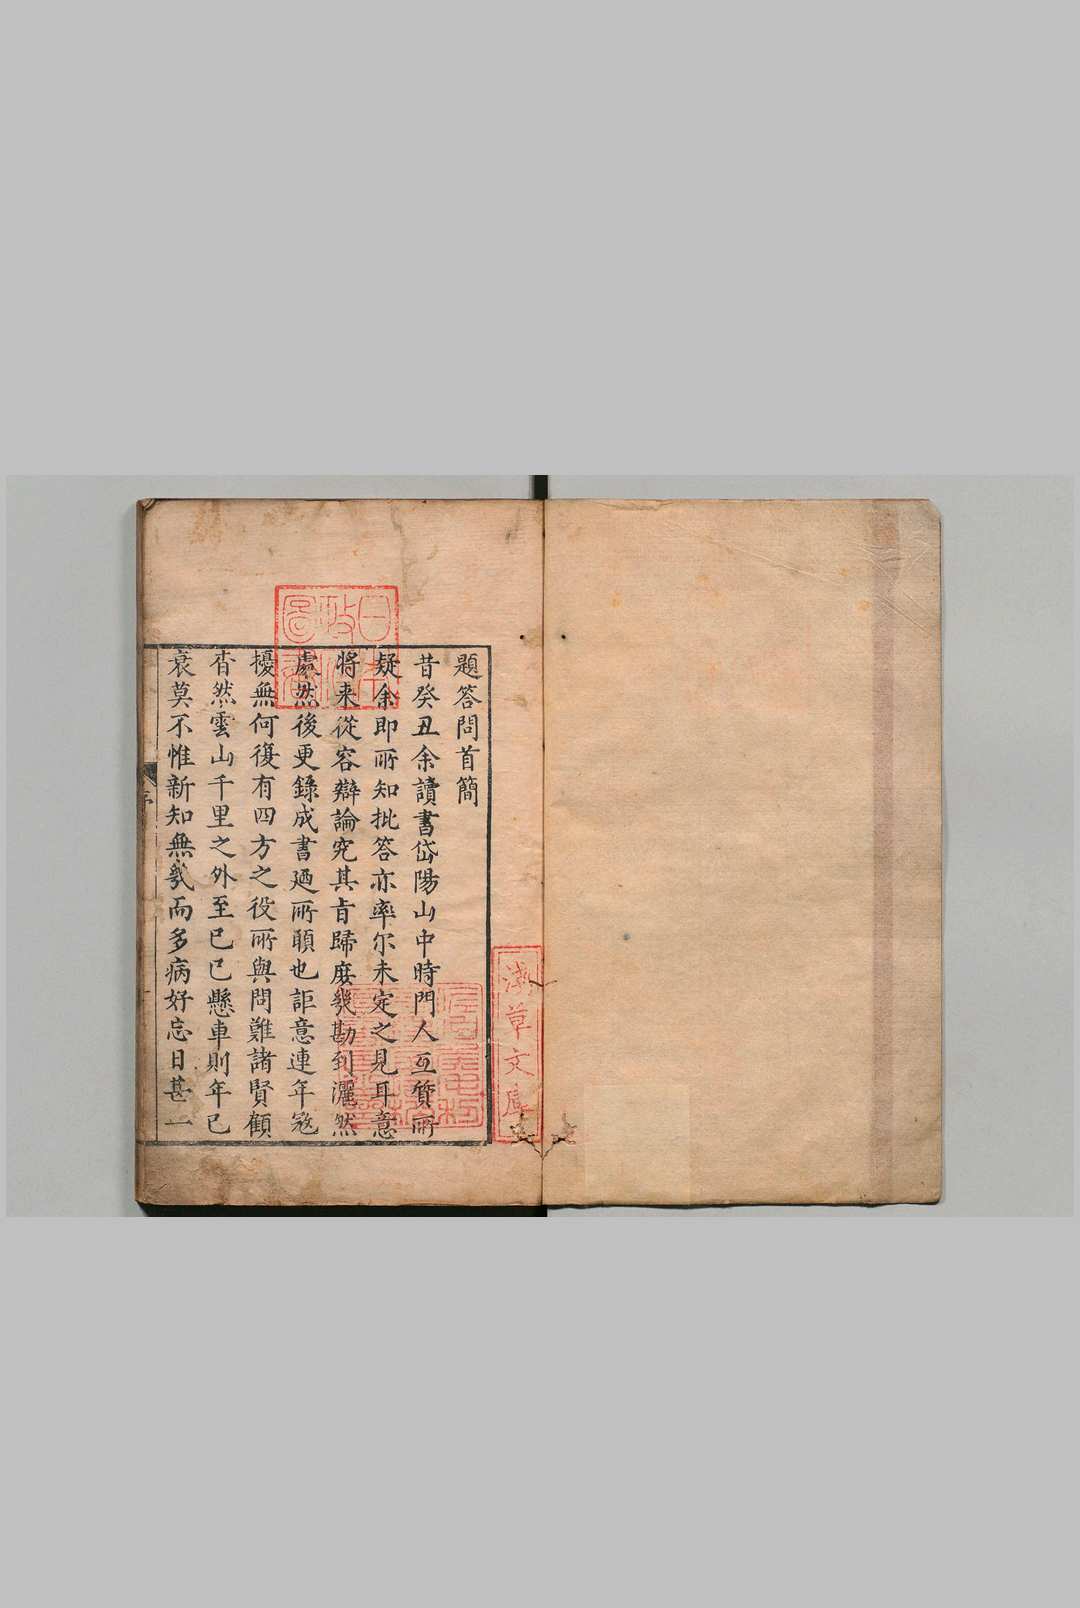 題答問首簡
昔癸丑余讀書岱陽山中時門人互質所
疑余即所知批答亦率尔未定之見耳意
將来從容辯論究其旨歸庶幾勘到灑然
處然後更錄成書廼所願也詎意連年寇
擾無何復有四方之役所與問難諸賢顧
杳然雲山千里之外至己巳懸車則年已
衰莫不惟新知無㡬而多病好忘日甚一
序
日本
政府
圖書
淺草文庫